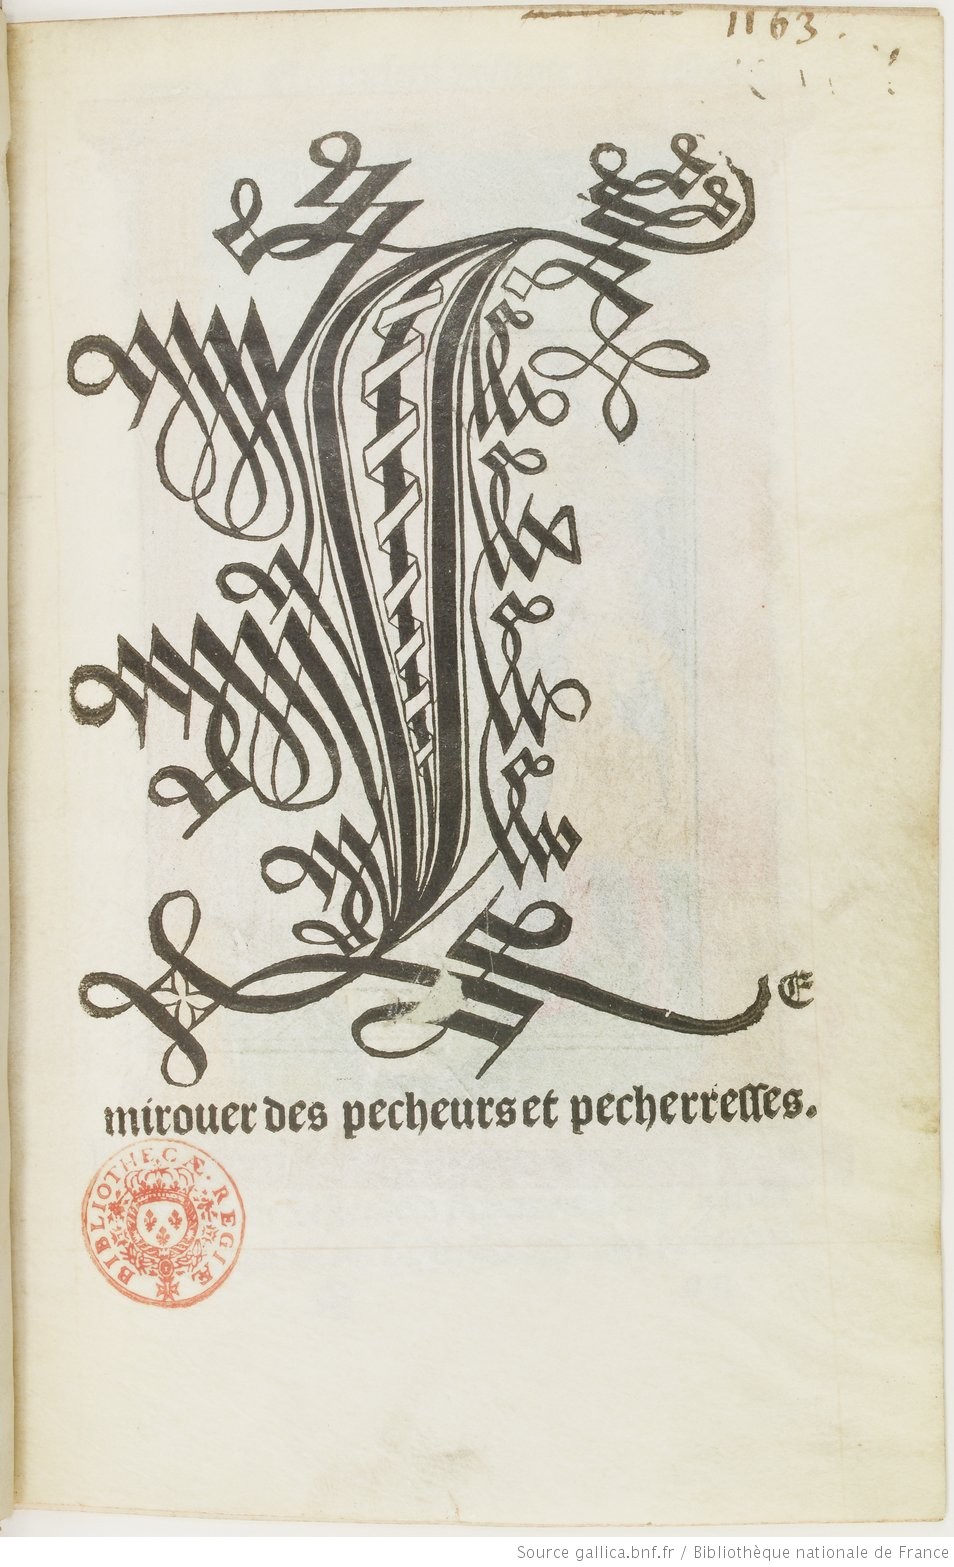 1163.
LE
mirouer des pecheurs et pecherresses.
BIBLIOTHECÆ · REGIÆ
Source gallica.bnf.fr / Bibliothèque nationale de France